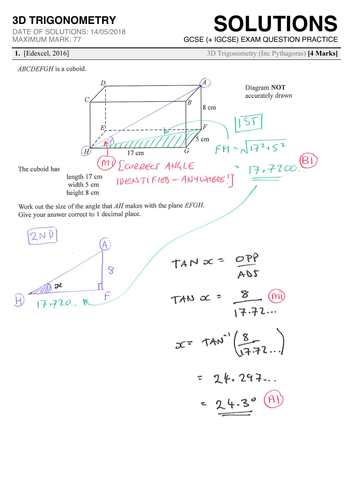 3D TRIGONOMETRY
DATE OF SOLUTIONS: 14/05/2018
MAXIMUM MARK: 77
SOLUTIONS
GCSE (+ IGCSE) EXAM QUESTION PRACTICE
1. [Edexcel, 2016]
3D Trigonometry (Inc Pythagoras) [4 Marks]
ABCDEFGH is a cuboid.
Diagram NOT
accurately drawn
D
A
C
B
8 cm
E
F
5 cm
H
17 cm
G
1ST
FH = √17²+5²
= 17.7200.. B1
M1 [CORRECT ANGLE
IDENTIFIED - ANYWHERE!]
The cuboid has
length 17 cm
width 5 cm
height 8 cm
Work out the size of the angle that AH makes with the plane EFGH.
Give your answer correct to 1 decimal place.
2ND
A
8
x
H
F
17.720..
TAN x = OPP
ADJ
TAN x = 8 M1
17.72...
x = TAN⁻¹(8
17.72...)
= 24.297...
= 24.3° A1